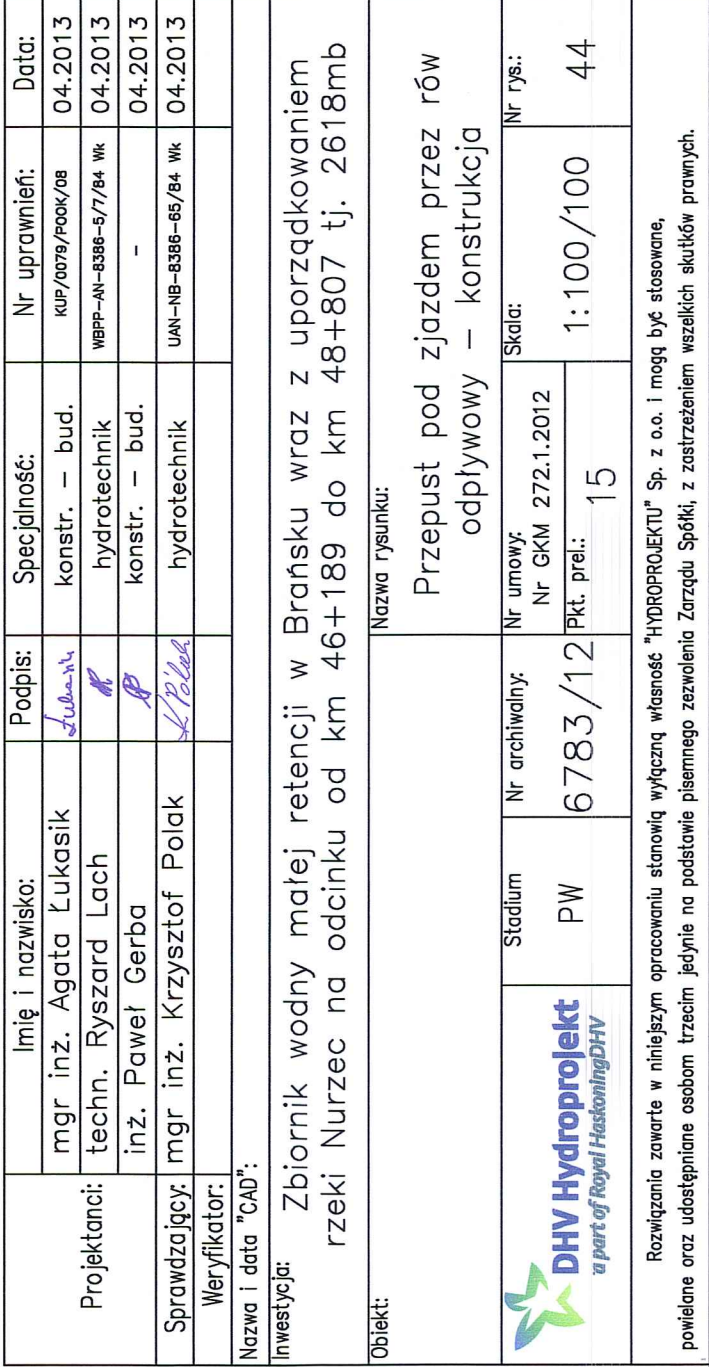 Imię i nazwisko: Podpis: Specjalność: Nr uprawnień: Data:
Projektanci: mgr inż. Agata Łukasik konstr. – bud. KUP/0079/POOK/08 04.2013
techn. Ryszard Lach hydrotechnik WBPP–AN–8386–5/7/84 Wk 04.2013
inż. Paweł Gerba konstr. – bud. – 04.2013
Sprawdzający: mgr inż. Krzysztof Polak K Polak hydrotechnik UAN–NB–8386–65/84 Wk 04.2013
Weryfikator:
Nazwa i data "CAD":
Inwestycja:
Zbiornik wodny małej retencji w Brańsku wraz z uporządkowaniem
rzeki Nurzec na odcinku od km 46+189 do km 48+807 tj. 2618mb
Obiekt:
Nazwa rysunku:
Przepust pod zjazdem przez rów
odpływowy – konstrukcja
DHV Hydroprojekt
a part of Royal HaskoningDHV
Stadium
PW
Nr archiwalny:
6783/12
Nr umowy:
Nr GKM 272.1.2012
Pkt. prel.:
15
Skala:
1:100/100
Nr rys.:
44
Rozwiązania zawarte w niniejszym opracowaniu stanowią wyłączną własność "HYDROPROJEKTU" Sp. z o.o. i mogą być stosowane,
powielane oraz udostępniane osobom trzecim jedynie na podstawie pisemnego zezwolenia Zarządu Spółki, z zastrzeżeniem wszelkich skutków prawnych.